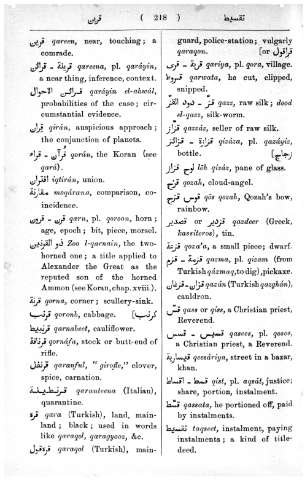 قرين ( 218 ) تقسيط
قرين qareen, near, touching; a
comrade.
قرينة - قرائن qareena, pl. qarâyin,
a near thing, inference, context.
قرائن الاحوال qarâyin el-ahwâl,
probabilities of the case; cir-
cumstantial evidence.
قران qirân, auspicious approach;
the conjunction of planets.
قرآن - قراء qorân, the Koran (see
qarâ).
اقتران iqtirân, union.
مقارنة moqârana, comparison, co-
incidence.
قرن - قرون qarn, pl. qoroon, horn;
age, epoch; bit, piece, morsel.
ذو القرنين Zoo l-qarnain, the two-
horned one; a title applied to
Alexander the Great as the
reputed son of the horned
Ammon (see Koran, chap. xviii.).
قرنة qorna, corner; scullery-sink.
قرنب [كرنب] qoronb, cabbage.
قرنبيط qarnabeet, cauliflower.
قرنافة qornâfa, stock or butt-end of
rifle.
قرنفل qaranful, "girofle," clover,
spice, carnation.
قرنتينة qaranteena (Italian),
quarantine.
قره qara (Turkish), land, main-
land; black; used in words
like qaragol, qaragyooz, &c.
قره قول qaragol (Turkish), main-
guard, police-station; vulgarly
qaraqon. [or قراقول]
قرية - قرى qariya, pl. qora, village.
قروط qarwata, he cut, clipped,
snipped.
قز - دود القز qazz, raw silk; dood
el-qazz, silk-worm.
قزاز qazzâz, seller of raw silk.
قزازة - قزائز qizâza, pl. qazâyiz,
bottle. [زجاج]
لوح قزاز lôh qizâz, pane of glass.
قزح qozah, cloud-angel.
قوس قزح qôs qozah, Qozah's bow,
rainbow.
قزدير or صدير qazdeer (Greek,
kassiteros), tin.
قزعة qoza'a, a small piece; dwarf.
قزمة - قزم qazma, pl. qizam (from
Turkish qâzmaq, to dig), pickaxe.
قزان - قزغان qazân (Turkish qazghân),
cauldron.
قس qass or qiss, a Christian priest,
Reverend.
قسيس - قسس qasees, pl. qosos,
a Christian priest, a Reverend.
قيسارية qeesâriya, street in a bazar,
khan.
قسط - اقساط qist, pl. aqsât, justice;
share, portion, instalment.
قسط qassata, he portioned off, paid
by instalments.
تقسيط taqseet, instalment, paying
instalments; a kind of title-
deed.